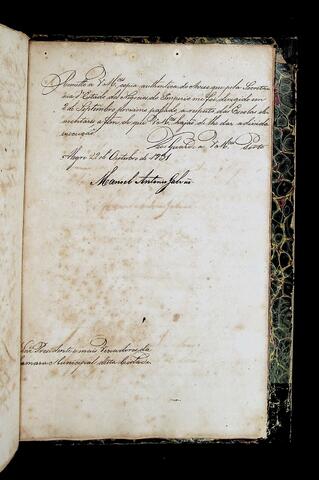 Remetto a V.Mces copia authentica do Aviso que pela Secreta
ria d'Estado dos Negocios do Imperio me foi dirigido em
2 de Septembro proximo passado, a respeito das Escolas de
a fim de que V.Mces hajão de lhe dar a devida
execução.
Deos Guarde a V.Mces Porto
Alegre 22 de Outubro de 1831
Manoel Antonio Galvão
Snrs. Presidente e mais Vereadores da
Camara Municipal desta Cidade.